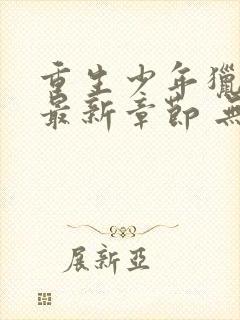 重生少年獵
最新章節 無
展新亞